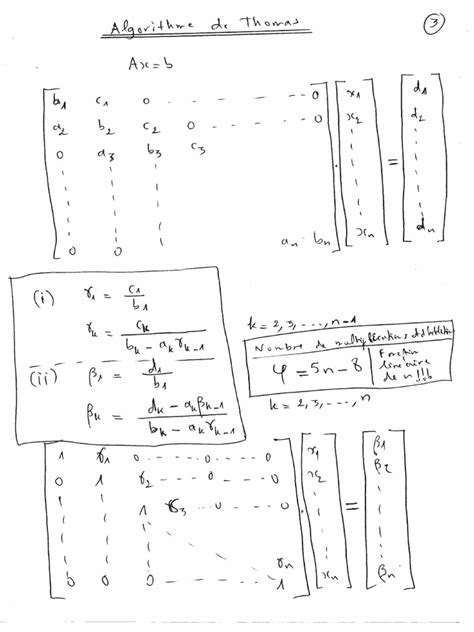 Algorithme de Thomas
3
Ax=b
b1 c1 0 - - - - - - - - 0 x1 d1
a2 b2 c2 0 - - - - - 0 x2 d2
0 a3 b3 c3
. =
0 0 an bn xn dn
(i) γ1 = c1/b1
γk = ck/(bk - ak γk-1)
k = 2, 3, ..., n-1
Nombre de multiplications et divisions
φ = 5n - 8
Fonction
linéaire
de n!!!
(ii) β1 = d1/b1
βk = (dk - ak βk-1)/(bk - ak γk-1)
k = 2, 3, ..., n
1 γ1 0 - - - - - 0 x1 β1
0 1 γ2 - - - 0 - - - 0 x2 β2
1 γ3 - - 0 - - - 0
. =
γn
0 0 0 - - - - - 1 xn βn